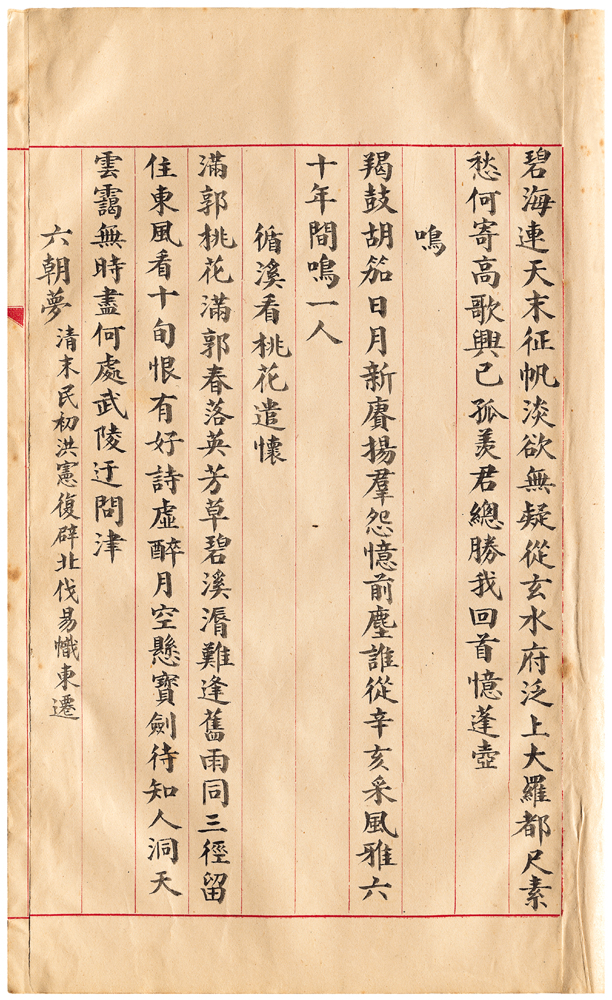 碧海連天末征帆淡欲無疑從玄水府泛上大羅都尺素
愁何寄高歌興已孤羨君總勝我回首憶蓬壺
鳴
羯鼓胡笳日月新賡揚羣怨憶前塵誰從辛亥采風雅六
十年間鳴一人
循溪看桃花遣懷
滿郭桃花滿郭春落英芳草碧溪漘難逢舊雨同三徑留
住東風看十旬恨有好詩虛醉月空懸寶劍待知人洞天
雲靄無時盡何處武陵迂問津
六朝夢清末民初洪憲復辟北伐易幟東遷